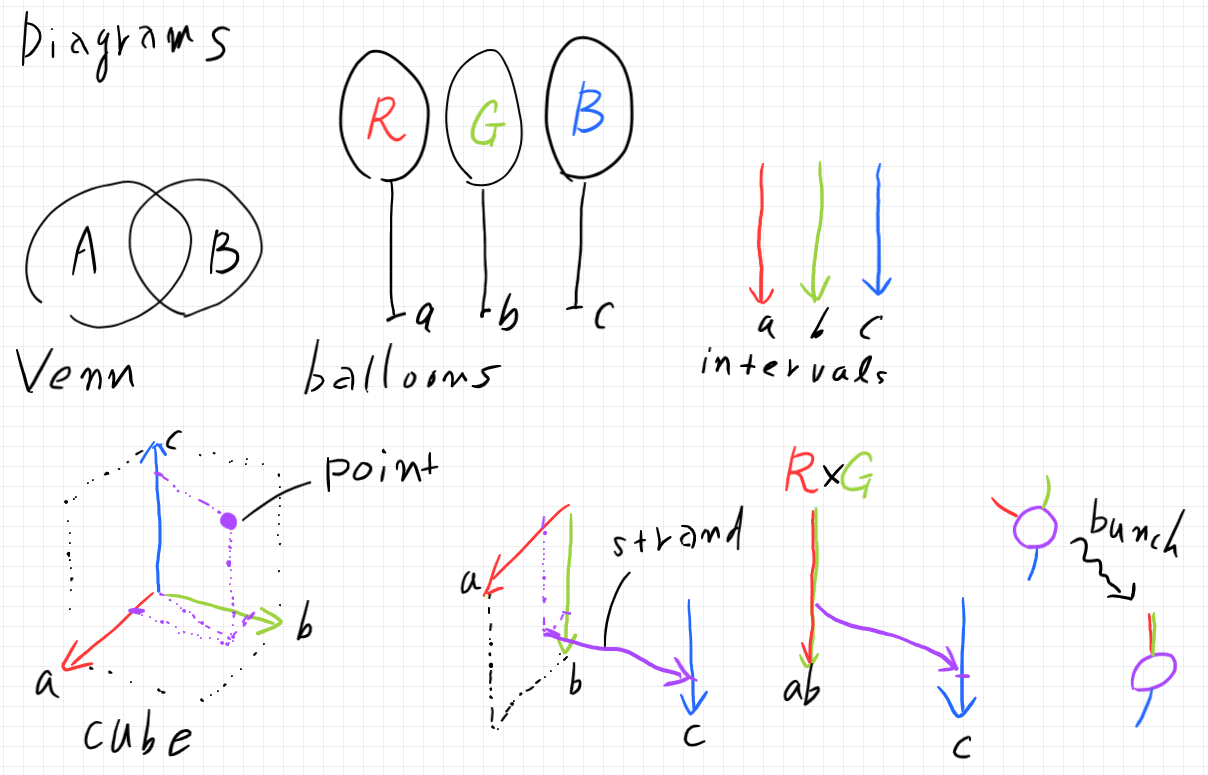 Diagrams
R G B
A B
a b c
a b c
Venn
balloons
intervals
c
point
R×G
strand
bunch
a
b
a
b
ab
c
c
cube